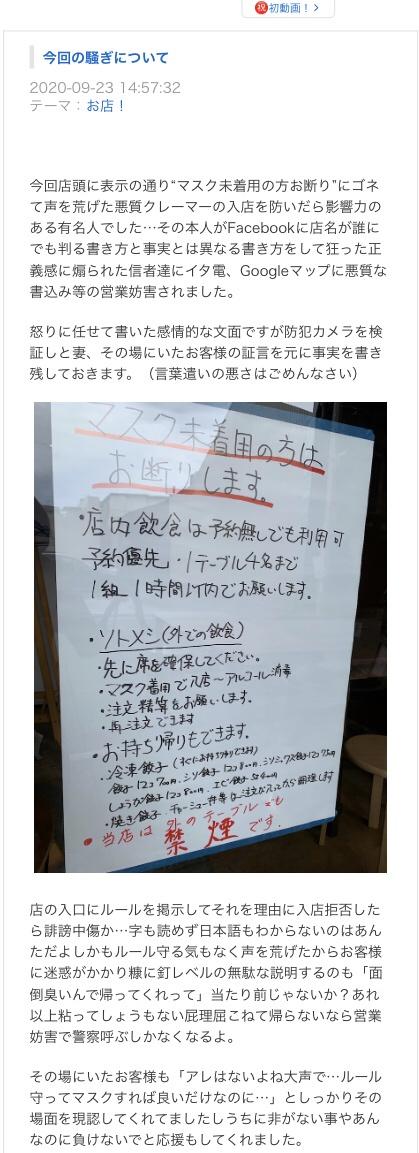 祝初動画！ >
今回の騒ぎについて
2020-09-23 14:57:32
テーマ：お店！
今回店頭に表示の通り“マスク未着用の方お断り”にゴネ
て声を荒げた悪質クレーマーの入店を防いだら影響力の
ある有名人でした…その本人がFacebookに店名が誰に
でも判る書き方と事実とは異なる書き方をして狂った正
義感に煽られた信者達にイタ電、Googleマップに悪質な
書込み等の営業妨害されました。
怒りに任せて書いた感情的な文面ですが防犯カメラを検
証しと妻、その場にいたお客様の証言を元に事実を書き
残しておきます。（言葉遣いの悪さはごめんなさい）
マスク未着用の方は
お断りします。
・店内飲食は予約無しでも利用可
予約優先・1テーブル4名まで
1組 1時間以内でお願いします。
・ソトメシ(外での飲食)
・先に席を確保してください。
・マスク着用で入店〜アルコール消毒
・注文精算をお願いします。
・再注文できます
・お持ち帰りもできます。
・冷凍餃子(すぐにお持ち帰りできます)
餃子12コ700円、シソ餃子12コ800円、
しょうが餃子12コ800円、エビ餃子
・焼き餃子、チャーシュー弁等は注文が入ってから調理します
・当店は外のテーブルでも
禁煙です。
店の入口にルールを掲示してそれを理由に入店拒否した
ら誹謗中傷か…字も読めず日本語もわからないのはあん
ただよしかもルール守る気もなく声を荒げたからお客様
に迷惑がかかり糠に釘レベルの無駄な説明するのも「面
倒臭いんで帰ってくれって」当たり前じゃないか？あれ
以上粘ってしょうもない屁理屈こねて帰らないなら営業
妨害で警察呼ぶしかなくなるよ。
その場にいたお客様も「アレはないよね大声で…ルール
守ってマスクすれば良いだけなのに…」としっかりその
場面を現認してくれてましたしうちに非がない事やあん
なのに負けないでと応援もしてくれました。